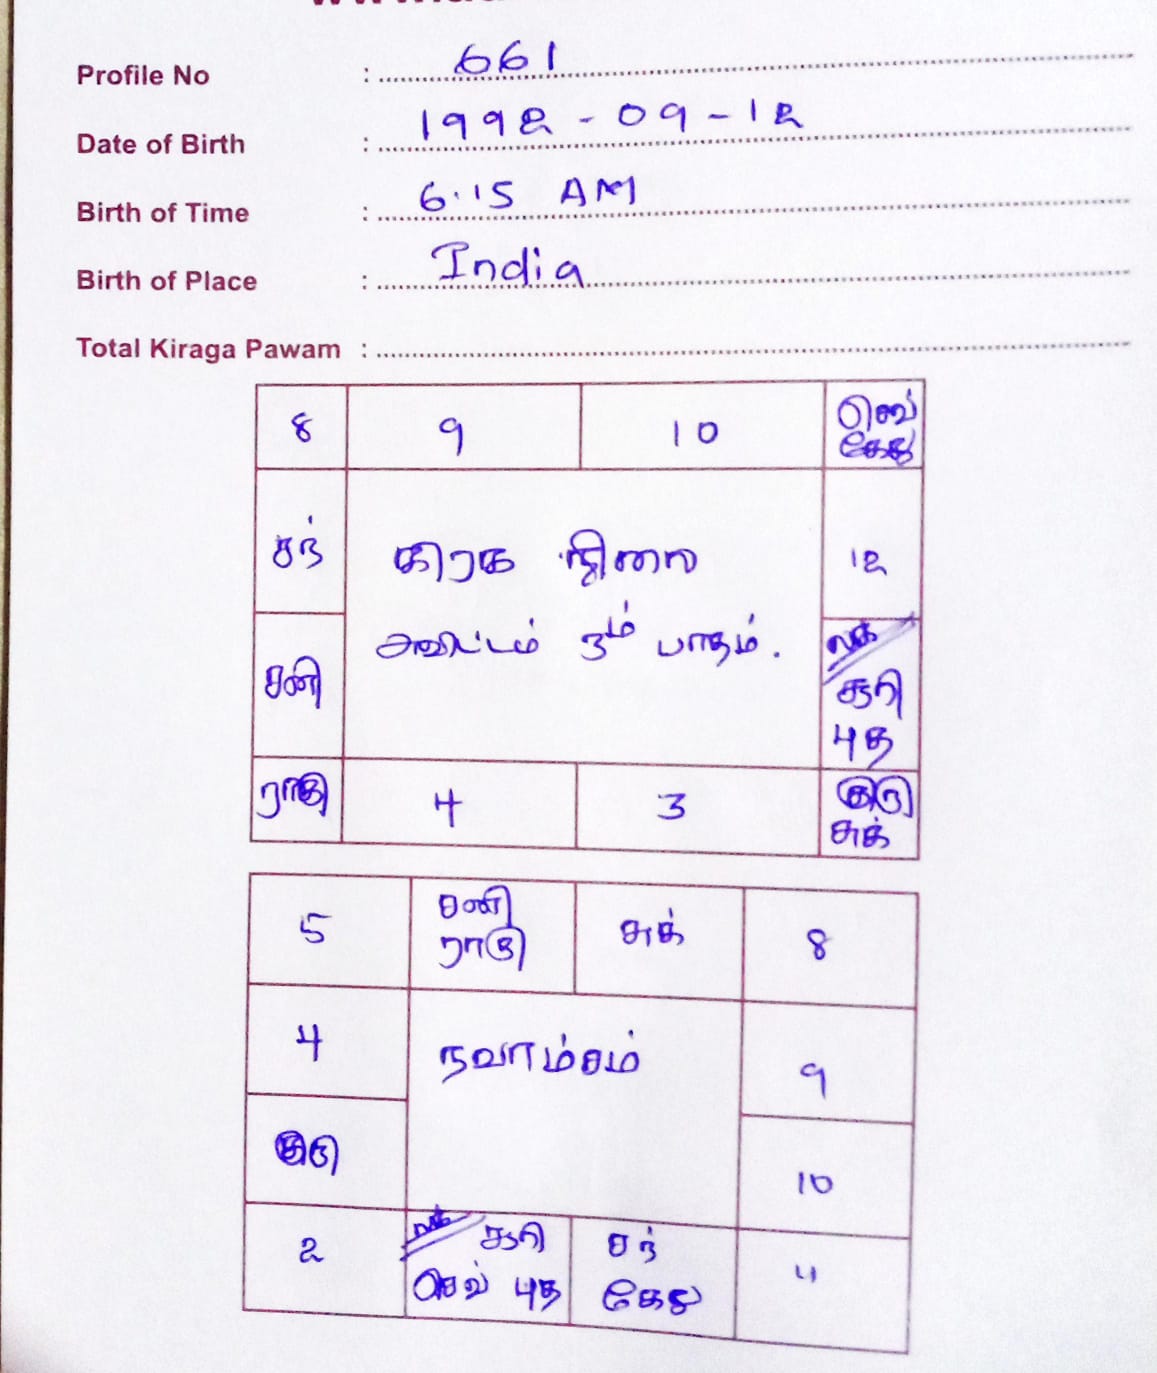 Profile No : 661
Date of Birth : 1992-09-12
Birth of Time : 6.15 AM
Birth of Place : India
Total Kiraga Pawam :
8 9 10 செவ்
கேது
சந் கிரக நிலை 12
அவிட்டம் 3ம் பாதம்.
லக்
சனி சூரி
புத
ராகு 4 3 குரு
சுக்
5 சனி சுக் 8
ராகு
4 நவாம்சம் 9
குரு 10
2 லக் சூரி சந் 11
செவ் புத கேது